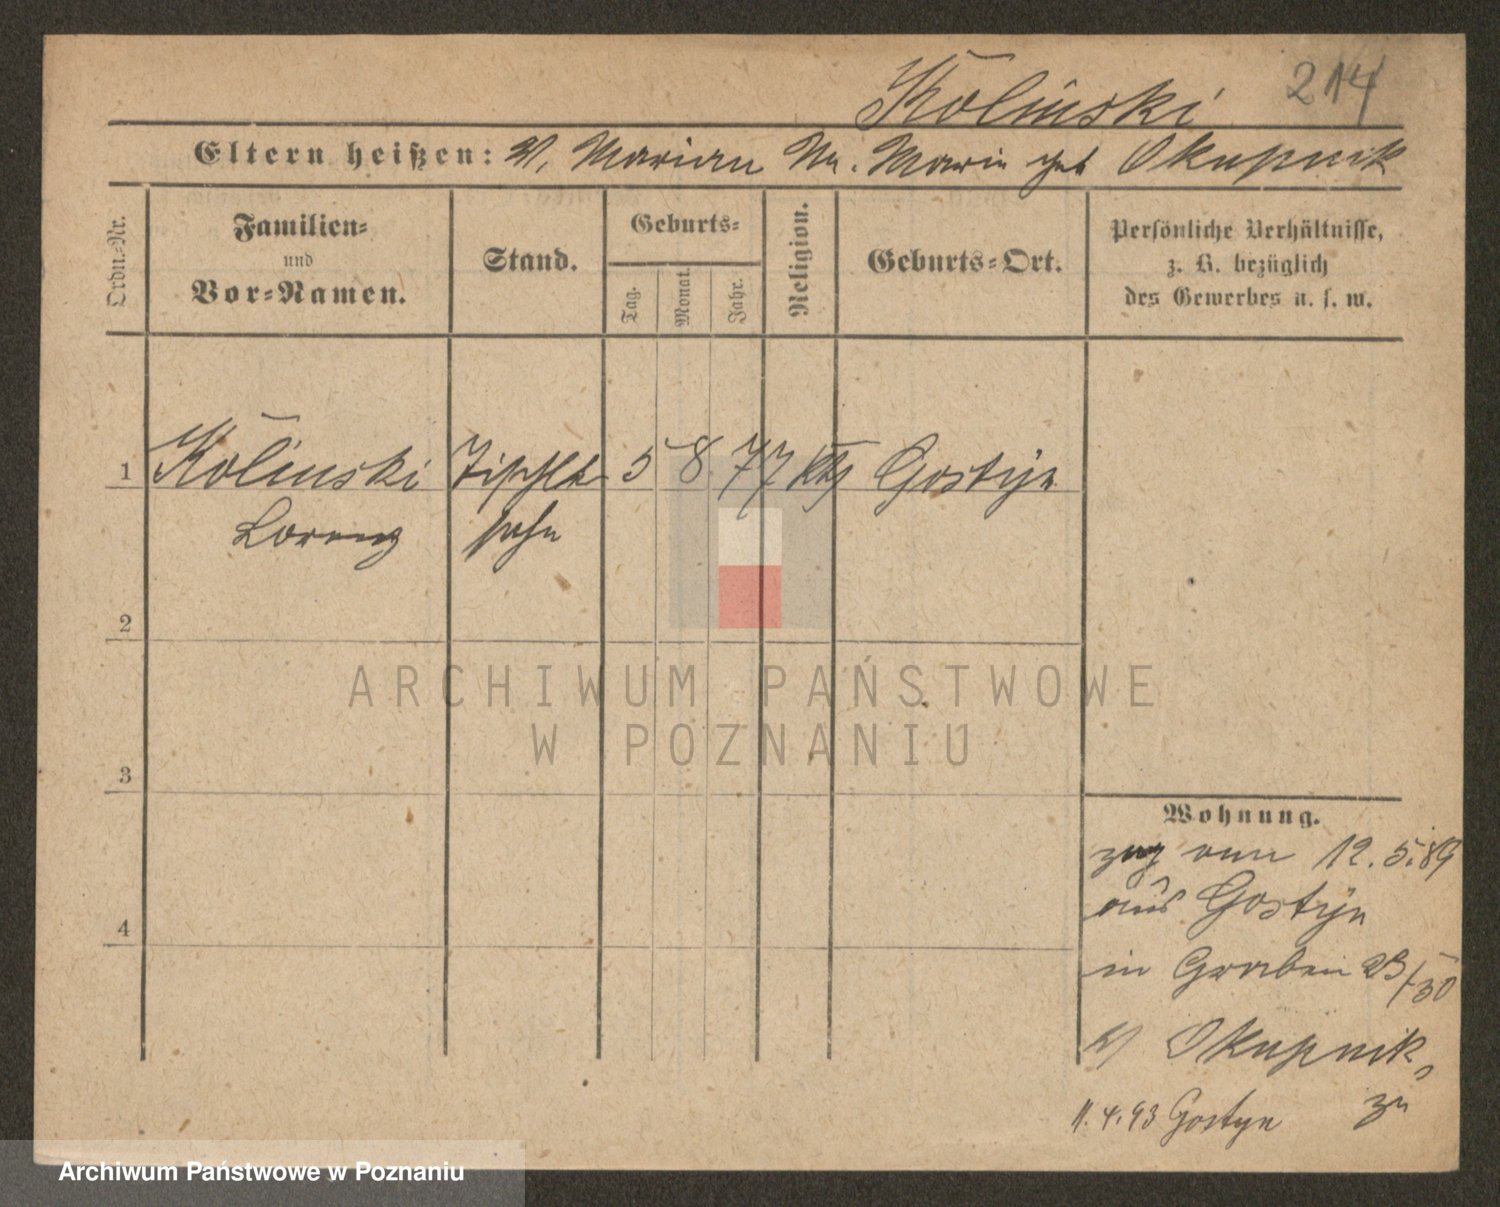 214
Kolinski
Eltern heißen: V. Marian M. Marie geb Okupnik
Ordn.-Nr.
Familien-
und
Vor-Namen.
Stand.
Geburts-
Tag.
Monat.
Jahr.
Religion.
Geburts-Ort.
Persönliche Verhältnisse,
z. B. bezüglich
des Gewerbes u. s. w.
1 Kolinski Tischler 5 8 77 kth Gostyn
Lorenz sohn
2
3
4
Wohnung.
zug vom 12.5.89
aus Gostyn
in Graben 23/30
Okupnik
zu
11.4.93 Gostyn
ARCHIWUM PAŃSTWOWE
W POZNANIU
Archiwum Państwowe w Poznaniu